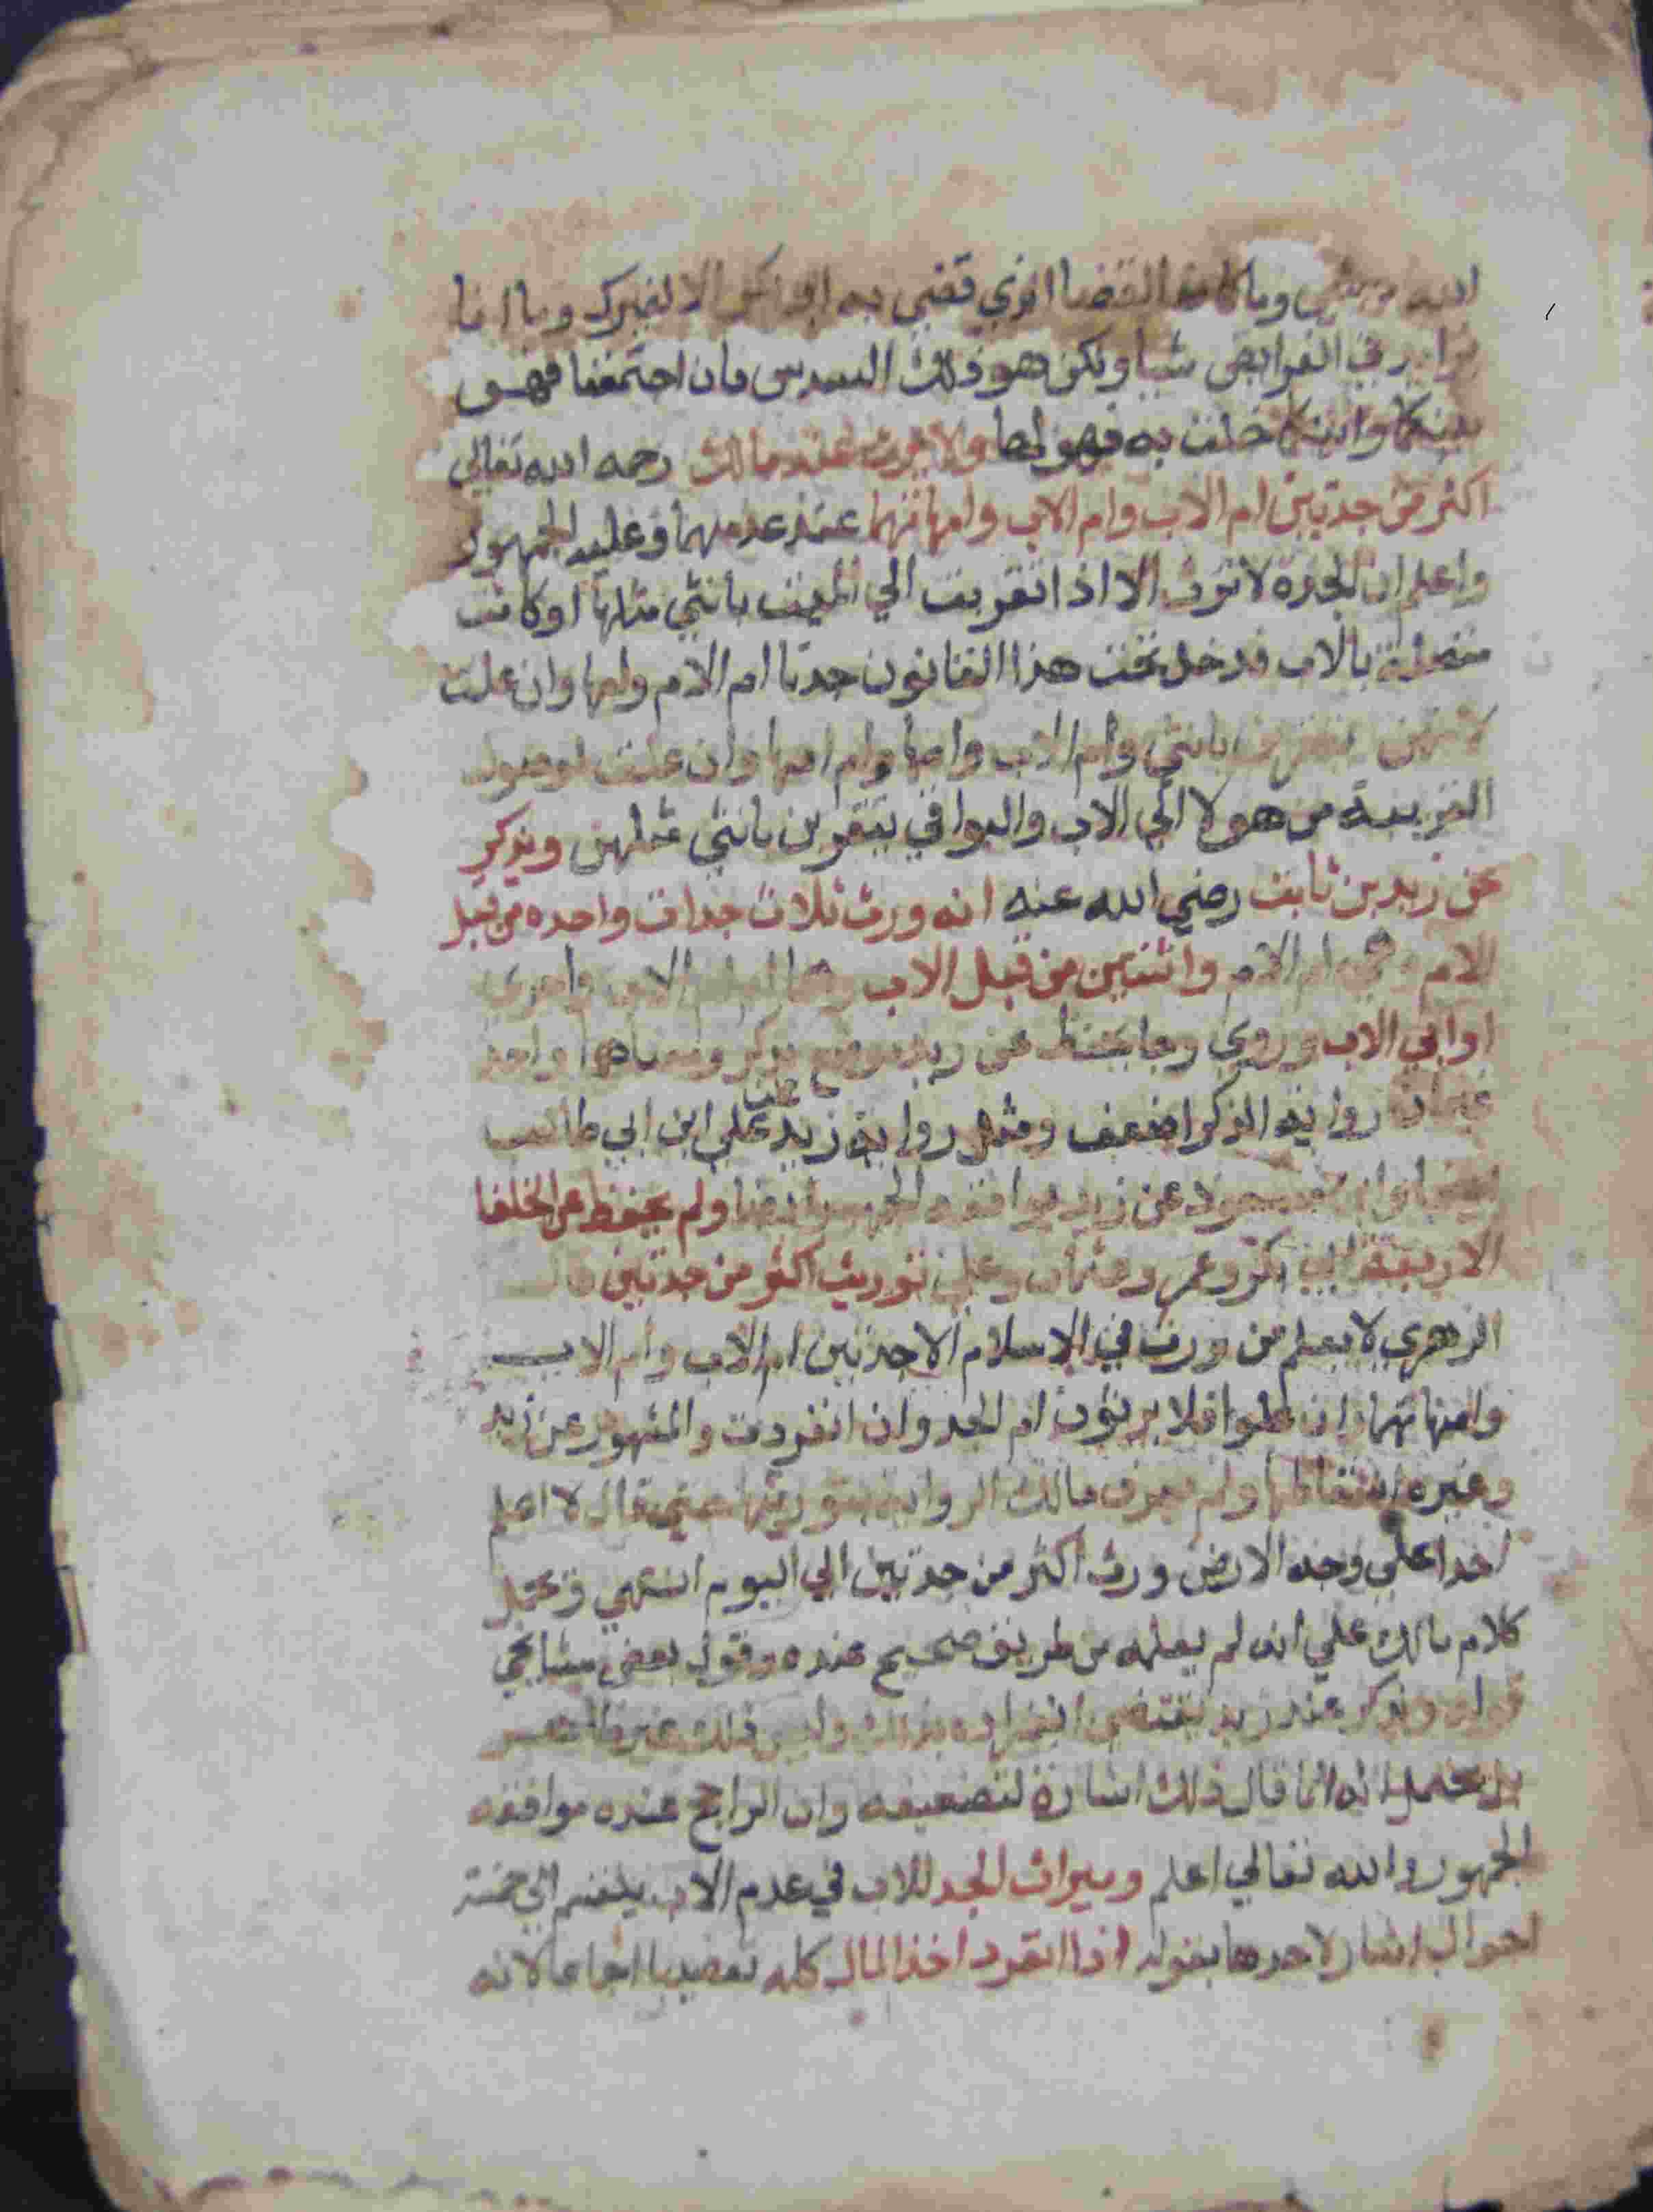 الله من شي وما كان القضا الذي قضي به ابو بكر الا لغيرك وما انا
بزايد في الفرايض شيا ولكن هو ذلك السدس فان اجتمعتما فهو
بينكما وايتكما خلت به فهو لها ولا يرث عند مالك رحمه الله تعالي
اكثر من جدتين ام الاب وام الام وامهاتهما عند عدمهما وعليه الجمهور
واعلم ان الجدة لا ترث الا اذا تقربت الي الميت بانثي مثلها او كانت
متصلة بالاب فدخل تحت هذا القانون جدتا ام الام وامها وان علت
لانهن يتقربن بانثي وام الاب وامها وام امها وان علت لوصول
القريبة من هولا الي الاب والبواقي يتقربن بانثي مثلهن ويذكر
عن زيد بن ثابت رضي الله عنه انه ورث ثلاث جدات واحده من قبل
الام وهي ام الام واثنتين من قبل الاب وهما ام ام الاب واخري
ام ابي الاب وروي
روايه الذكر اضعف ومثل رواية زيد عن علي ابن ابي طالب
مسعود عن زيد موافقه الجمهور ايضا ولم يحفظ عن الخلفا
الاربعة ابي بكر وعمر وعثمان وعلي توريث اكثر من جدتين قال
الزهري لا يعلم من ورث في الاسلام الا جدتين ام الاب وام الاب
وامهاتهما وان علوا فلا يرثون ام الجد وان انفردت والمشهور عن زيد
وغيره اسقاطها ولم يعرف مالك الرواية بتوريثها حتي قال لا اعلم
احدا علي وجه الارض ورث اكثر من جدتين الي اليوم انتهي وحمل
كلام مالك علي انه لم يعلمه من طريق صحيح عنده وقول بعض مشايخي
قوله ويذكر عن زيد يقتضي انفراده بذلك وليس ذلك
بل يحتمل انه انما قال ذلك اشارة لتضعيفه وان الراجح عنده موافقه
الجمهور والله تعالي اعلم وميراث الجد للاب في عدم الاب ينقسم الي خمسة
احوال اشار لاحدها بقوله اذا انفرد اخذ المال كله تعصيبا اجماعا لانه